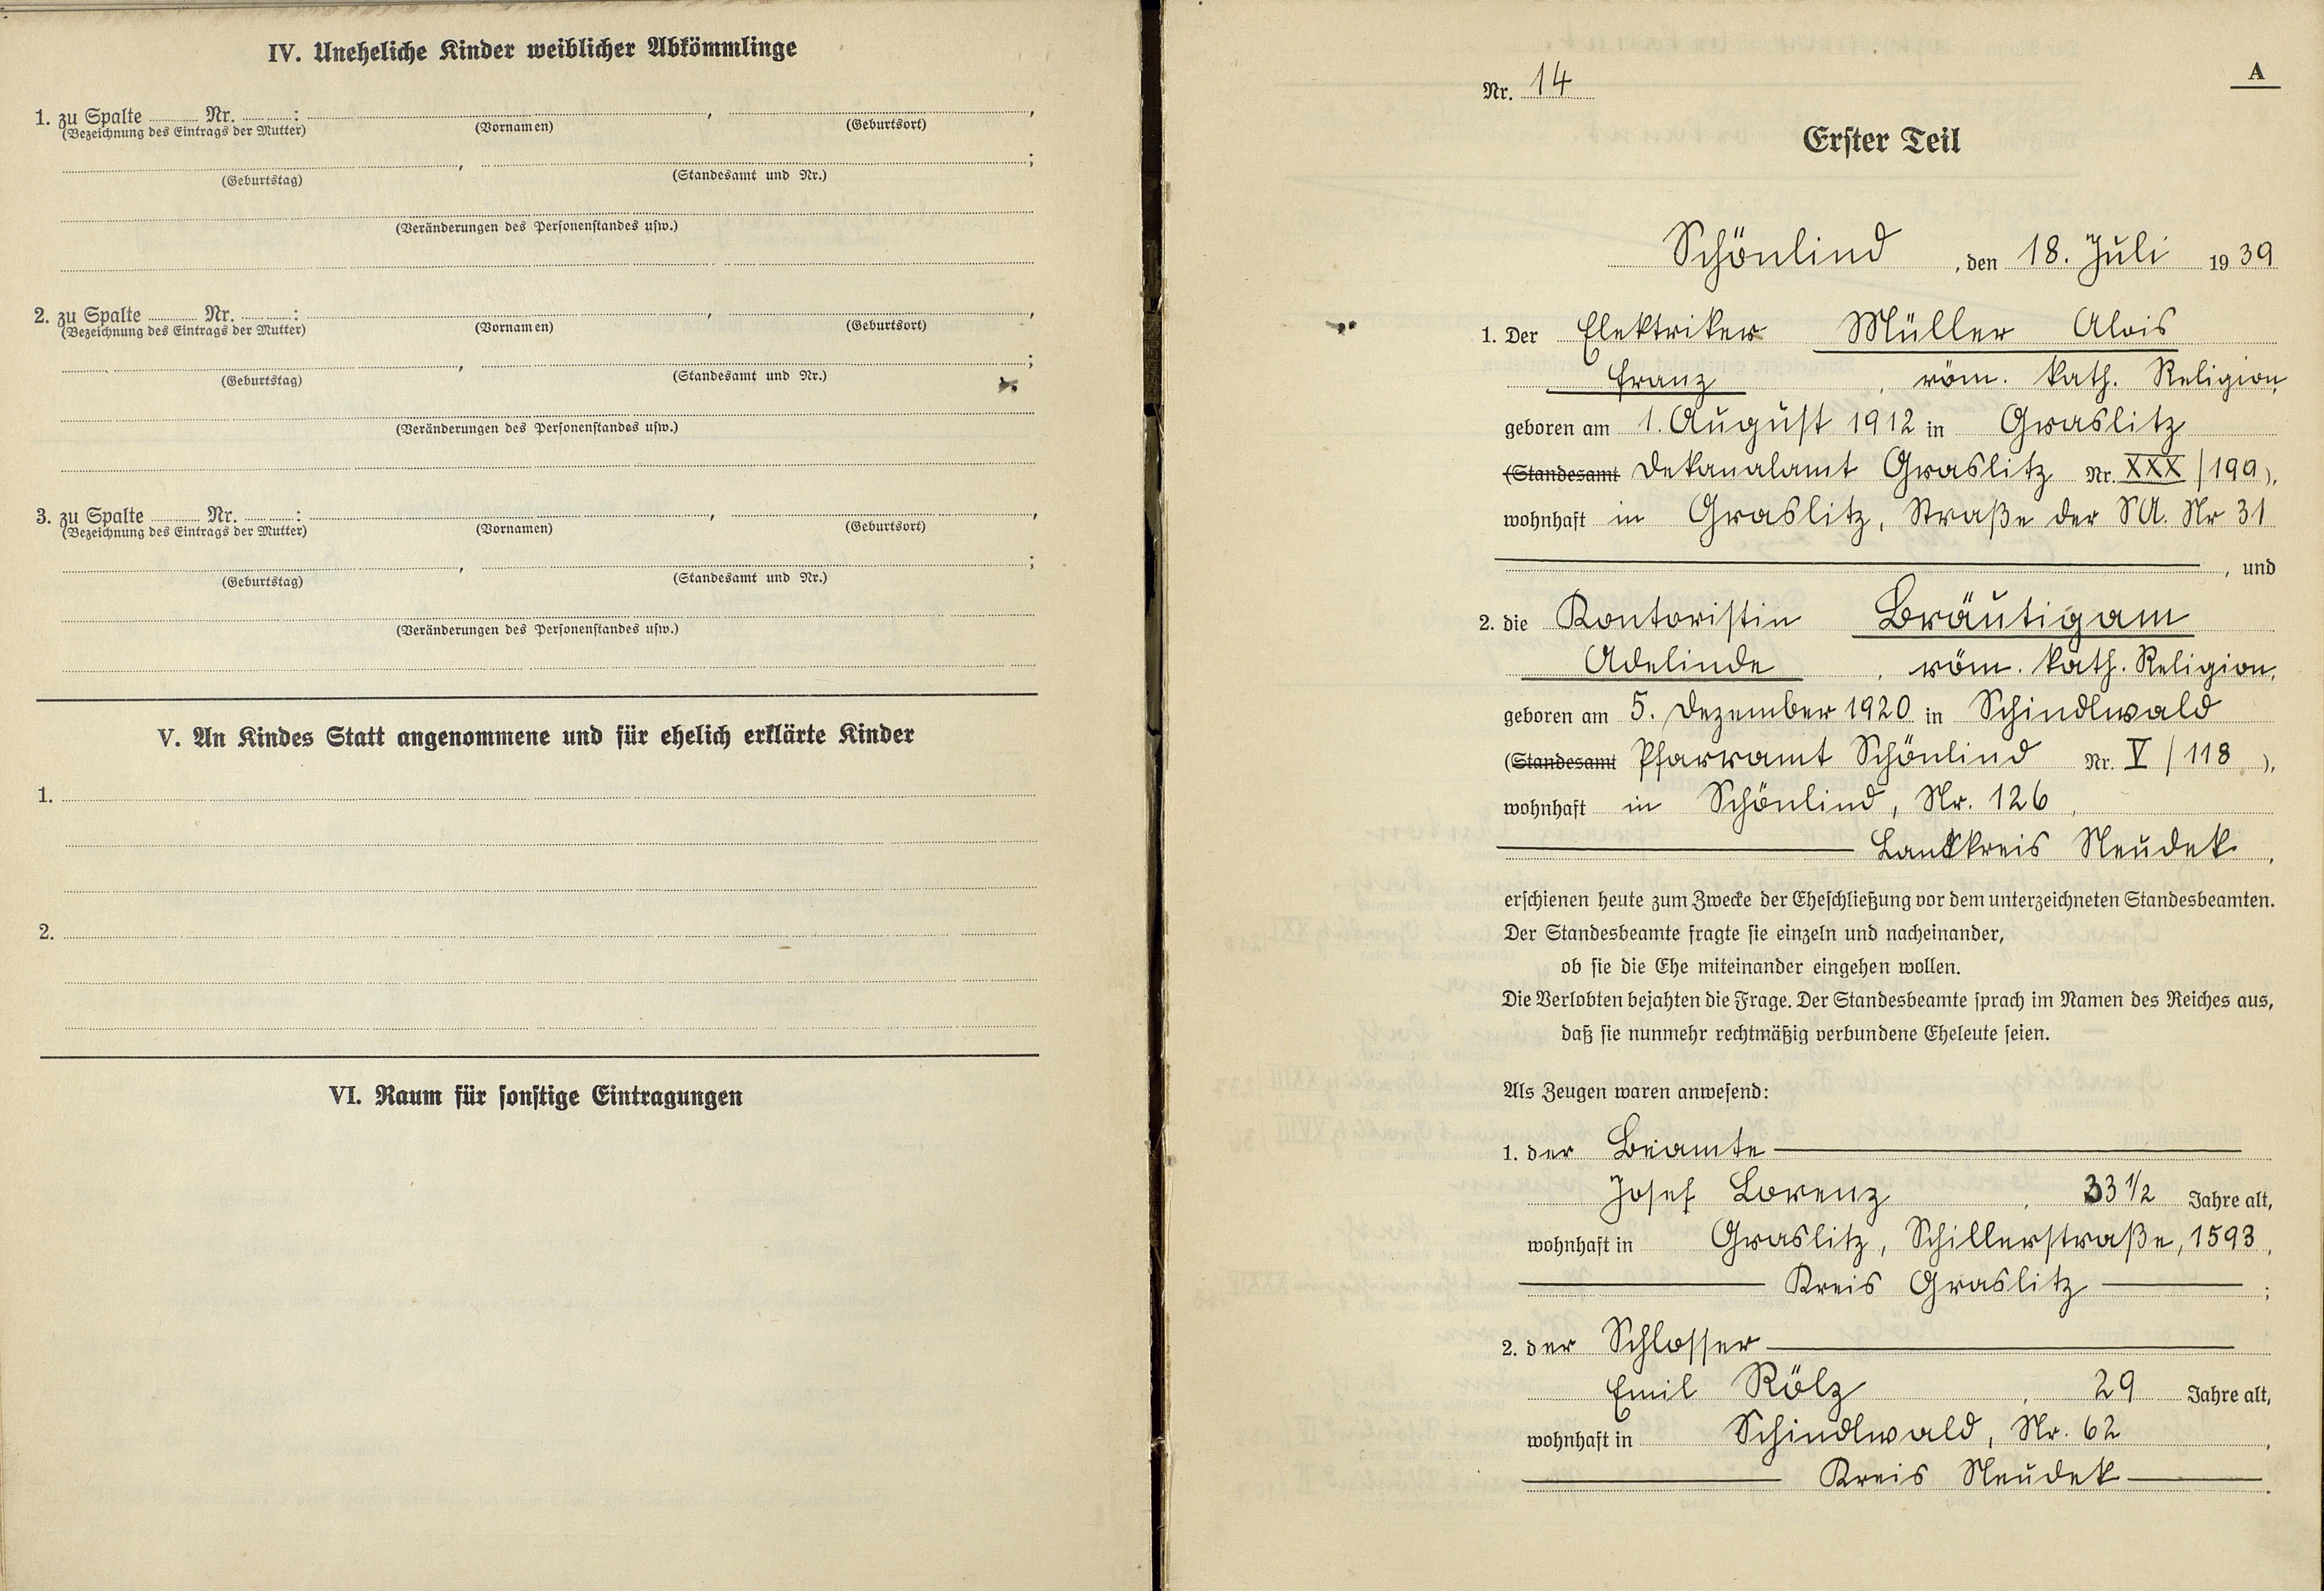 IV. Uneheliche Kinder weiblicher Abkömmlinge
1. zu Spalte ........ Nr. ........: ........, ........,
(Bezeichnung des Eintrags der Mutter) (Vornamen) (Geburtsort)
........, ........;
(Geburtstag) (Standesamt und Nr.)
(Veränderungen des Personenstandes usw.)
2. zu Spalte ........ Nr. ........: ........, ........,
(Bezeichnung des Eintrags der Mutter) (Vornamen) (Geburtsort)
........, ........;
(Geburtstag) (Standesamt und Nr.)
(Veränderungen des Personenstandes usw.)
3. zu Spalte ........ Nr. ........: ........, ........,
(Bezeichnung des Eintrags der Mutter) (Vornamen) (Geburtsort)
........, ........;
(Geburtstag) (Standesamt und Nr.)
(Veränderungen des Personenstandes usw.)
V. An Kindes Statt angenommene und für ehelich erklärte Kinder
1.
2.
VI. Raum für sonstige Eintragungen
A
Nr. 14
Erster Teil
Schönlind, den 18. Juli 1939
1. Der Elektriker Müller Alois
Franz, röm. kath. Religion,
geboren am 1. August 1912 in Graslitz
(Standesamt Dekanalamt Graslitz Nr. XXX/199),
wohnhaft in Graslitz, Straße der SA. Nr 31
, und
2. die Kontoristin Bräutigam
Adelinde, röm. kath. Religion,
geboren am 5. Dezember 1920 in Schindlwald
(Standesamt Pfarramt Schönlind Nr. V/118),
wohnhaft in Schönlind, Nr. 126,
Landkreis Neudek,
erschienen heute zum Zwecke der Eheschließung vor dem unterzeichneten Standesbeamten.
Der Standesbeamte fragte sie einzeln und nacheinander,
ob sie die Ehe miteinander eingehen wollen.
Die Verlobten bejahten die Frage. Der Standesbeamte sprach im Namen des Reiches aus,
daß sie nunmehr rechtmäßig verbundene Eheleute seien.
Als Zeugen waren anwesend:
1. der Beamte
Josef Lorenz, 33 1/2 Jahre alt,
wohnhaft in Graslitz, Schillerstraße, 1593,
Kreis Graslitz;
2. der Schlosser
Emil Rölz, 29 Jahre alt,
wohnhaft in Schindlwald, Nr. 62,
Kreis Neudek.